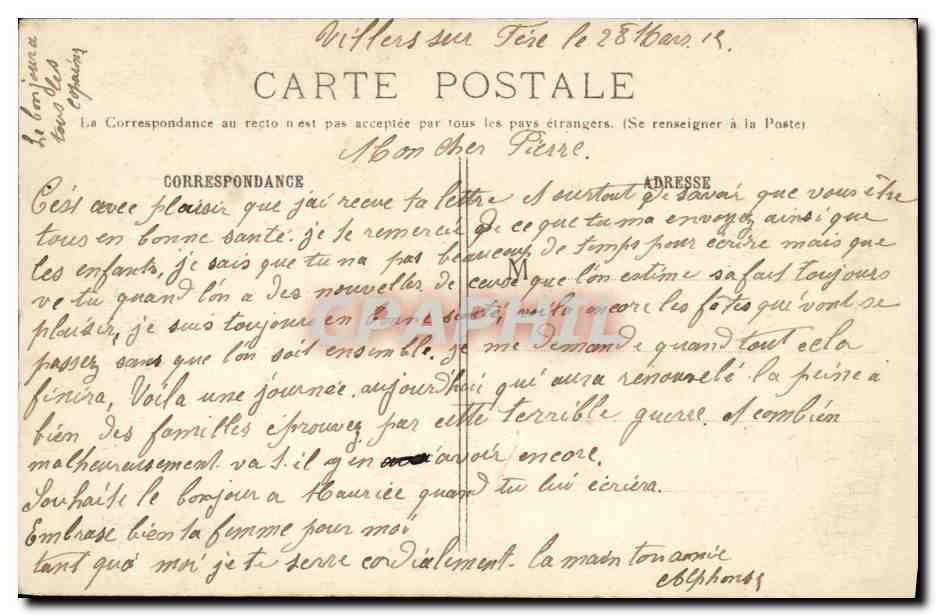 Villers sur Fère le 28 Mars 15.
Le bonjour a
tous les
copains
CARTE POSTALE
La Correspondance au recto n'est pas acceptée par tous les pays étrangers. (Se renseigner à la Poste)
Mon cher Pierre.
CORRESPONDANCE ADRESSE
C'éss avec plaisir que j'ai reçue ta lettre et surtout de savoir que vous ête
tous en bonne santé. je te remercie de ce que tu ma envoyez ainsi que
les enfants, je sais que tu na pas beaucoup de temps pour écrire mais que
ve tu quand l'on a des nouvelles de ceuse que l'on estime sa fait toujours
M
plaisir, je suis toujour en bonne santé, voila encore les fêtes qui vont se
CPAPHIL
passez sans que l'on soit ensemble. je me demande quand tout cela
finira, Voila une journée aujourd'hui qui aura renouvelé la peine a
bien des familles éprouvez par cette terrible guerre. et combien
malheureusement va t. il y en avoir encore.
Souhaite le bonjour a Maurice quand tu lui écrira.
Embrase bien ta femme pour moi
tant qu'a moi je te serre cordialement la main ton amie
Alphonse